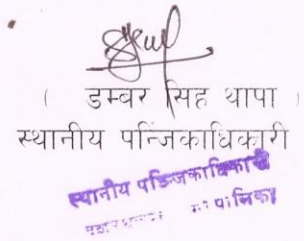 ( डम्बर सिंह थापा )
स्थानीय पन्जिकाधिकारी
स्थानीय पञ्जिकाधिकारी